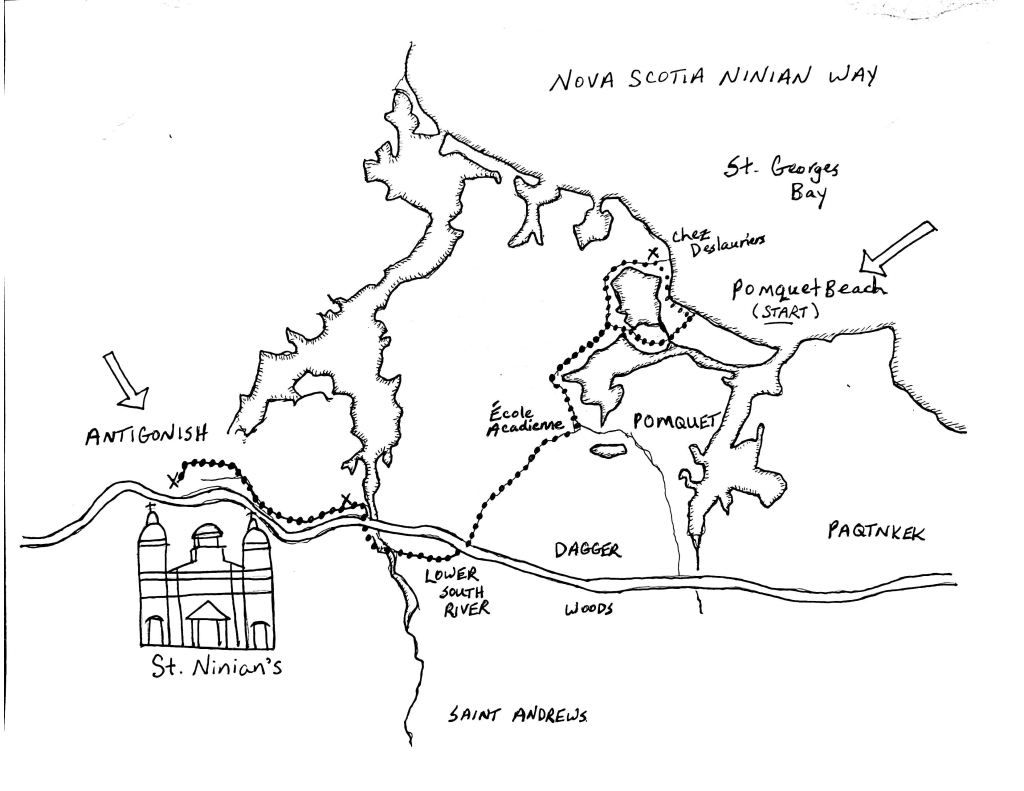 NOVA SCOTIA NINIAN WAY
St. Georges
Bay
Chez
Deslauriers
Pomquet Beach
(START)
ANTIGONISH
École
Acadienne
POMQUET
PAQTNKEK
DAGGER
WOODS
LOWER
SOUTH
RIVER
St. Ninian's
SAINT ANDREWS